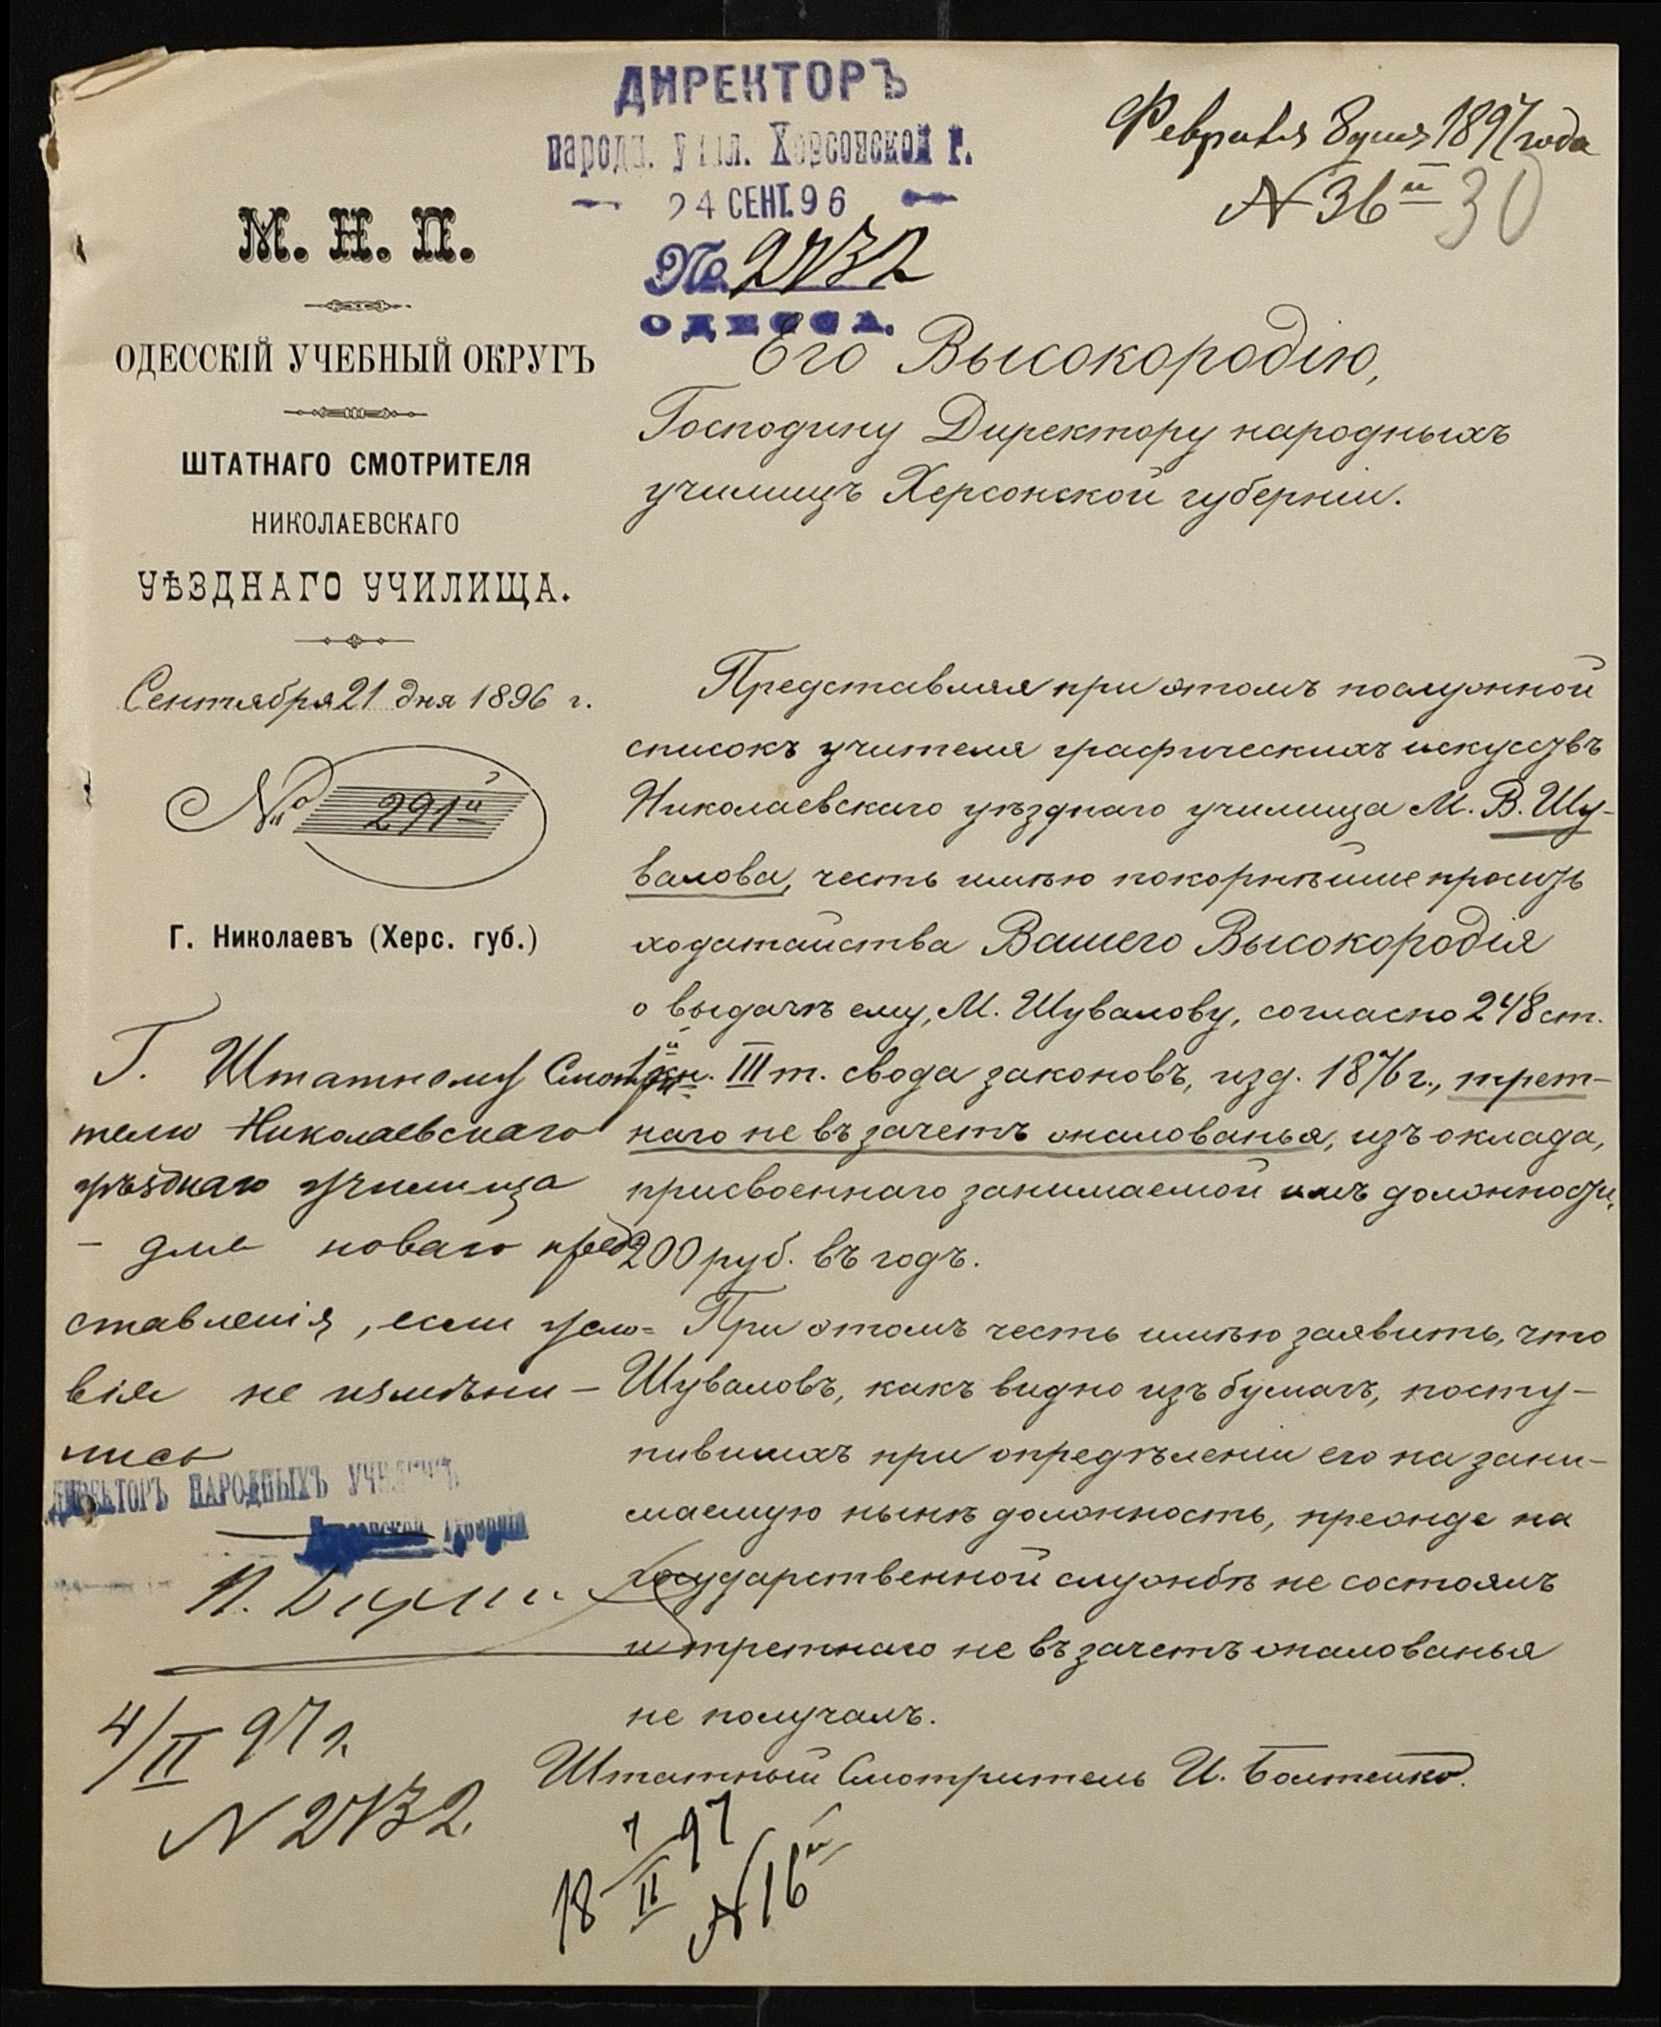 ДИРЕКТОРЪ
народн. учил. Херсонской г.
24 СЕНТ. 96
№ 2732
ОДЕССА.
Февраля 8 дня 1897 года
N 36 й 30
М. Н. П.
ОДЕССКІЙ УЧЕБНЫЙ ОКРУГЪ
ШТАТНАГО СМОТРИТЕЛЯ
НИКОЛАЕВСКАГО
УѢЗДНАГО УЧИЛИЩА.
Сентября 21 дня 1896 г.
№ 291 й
Г. Николаевъ (Херс. губ.)
Его Высокородію,
Господину Директору народныхъ
училищъ Херсонской губерніи.
Представляя при этомъ послужной
списокъ учителя графическихъ искусствъ
Николаевскаго уѣзднаго училища М. В. Шу-
валова, честь имѣю покорнѣйше просить
ходатайства Вашего Высокородія
о выдачѣ ему, М. Шувалову, согласно 248 ст.
кн. III т. свода законовъ, изд. 1876 г., трет-
наго не въ зачетъ жалованья, изъ оклада,
присвоеннаго занимаемой имъ должности,
200 руб. въ годъ.
При этомъ честь имѣю заявить, что
Шуваловъ, какъ видно изъ бумагъ, посту-
пившихъ при опредѣленіи его на зани-
маемую нынѣ должность, прежде на
государственной службѣ не состоялъ
и третнаго не въ зачетъ жалованья
не получалъ.
Штатный Смотритель И. Болтенко.
Г. Штатному Смотри
телю Николаевскаго
уѣзднаго училища
– для новаго пред
ставленія, если усло=
вія не измѣни-
лись
ДИРЕКТОРЪ НАРОДНЫХЪ УЧИЛИЩЪ
Херсонской губерніи
4/II 97 г.
N 2732.
18 7/II 97
N 16 й